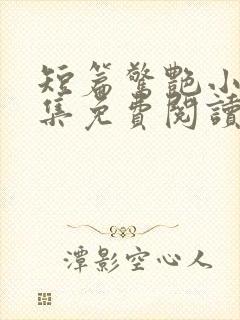 短篇驚艷小
集免費閱讀
潭影空心人